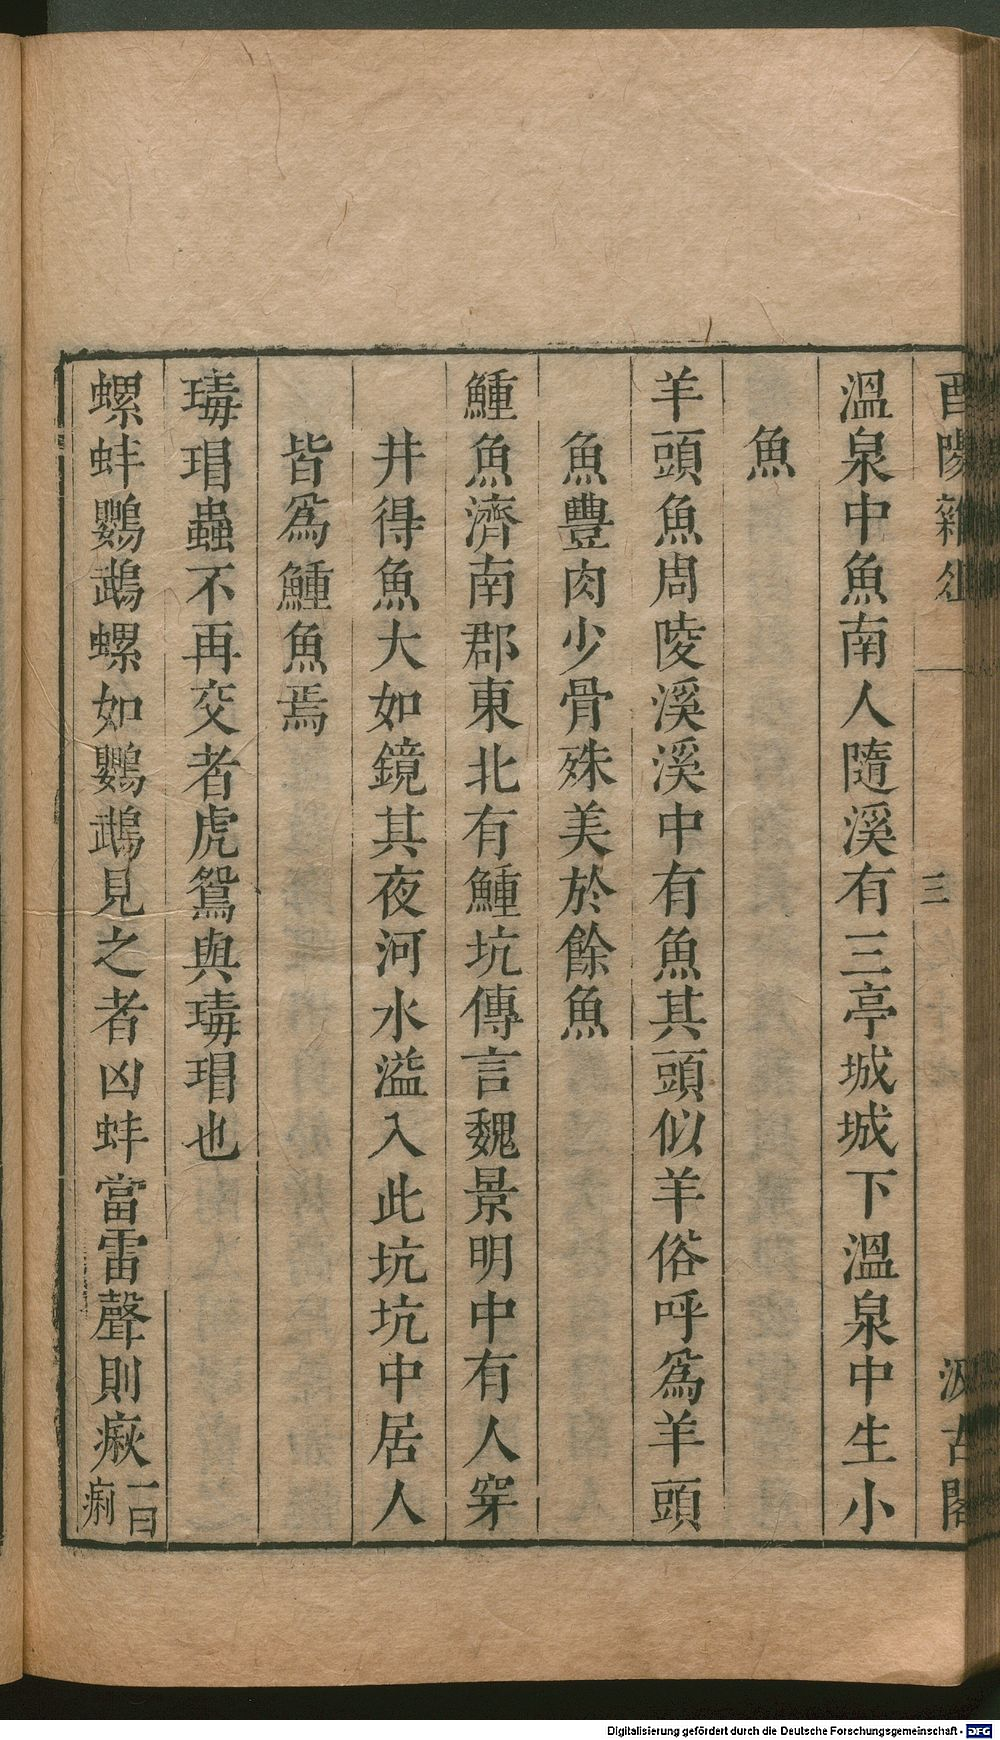 酉陽雜俎
三
汲古閣
溫泉中魚南人隨溪有三亭城城下溫泉中生小
魚
羊頭魚周陵溪溪中有魚其頭似羊俗呼爲羊頭
魚豐肉少骨殊美於餘魚
鯶魚濟南郡東北有鯶坑傳言魏景明中有人穿
井得魚大如鏡其夜河水溢入此坑坑中居人
皆爲鯶魚焉
瑇瑁蟲不再交者虎鴛與瑇瑁也
螺蚌鸚鵡螺如鸚鵡見之者凶蚌當雷聲則瘷一曰𤷄
Digitalisierung gefördert durch die Deutsche Forschungsgemeinschaft - DFG